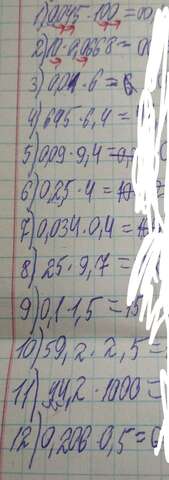 1) 0,0045 · 100 = 00,
2) 10 · 0,0668 = 00
3) 0,01 · 6 =
4) 645 · 6,4 =
5) 0,09 · 9,4 = 0,
6) 0,25 · 4 =
7) 0,034 · 0,4 =
8) 25 · 9,7 =
9) 0,1 · 1,5 = ,5
10) 59,2 · 2,5 =
11) 44,2 · 1000 =
12) 0,206 · 0,5 = 0